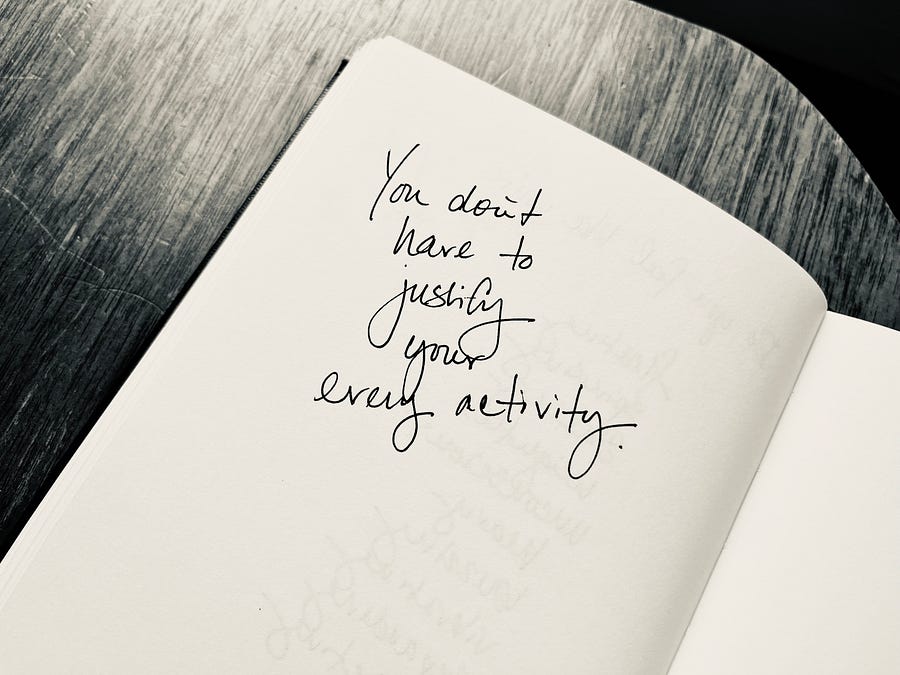 You don't
have to
justify
your
every activity.